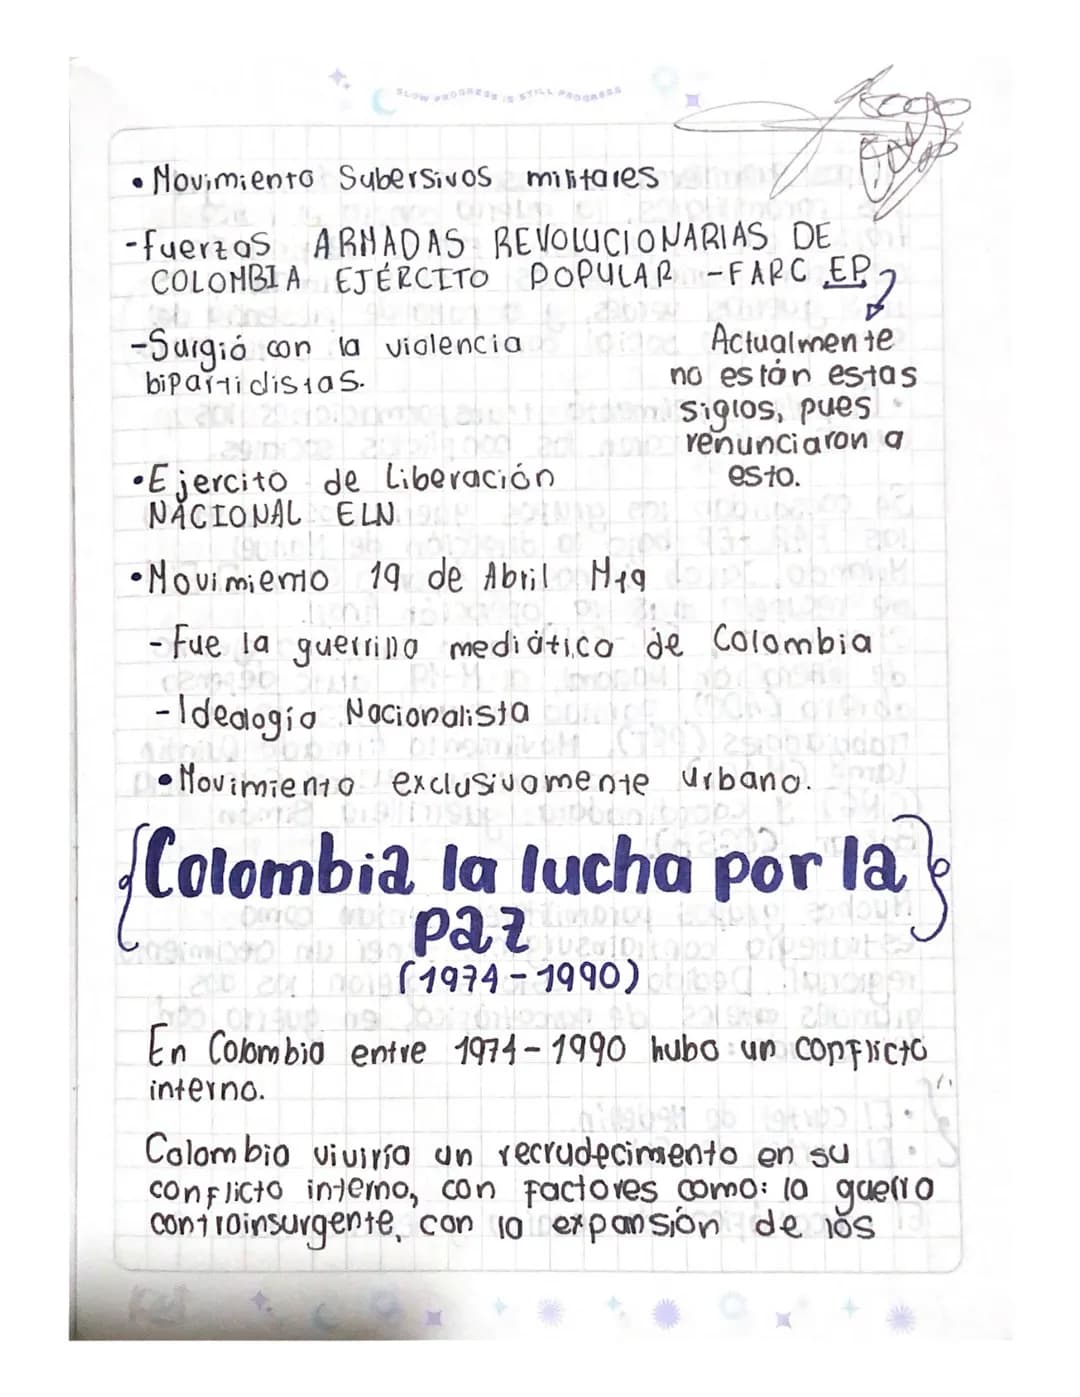 SLOW PROGRESS IS STILL PROGRESS
• Movimiento Subersivos militares
-fuerzas ARMADAS REVOLUCIONARIAS DE
COLOMBIA EJÉRCITO POPULAR -FARC EP
-Surgió con la violencia
bipartidistas.
Actualmente
no están estas
siglos, pues
renunciaron a
esto.
•Ejercito de Liberación
NACIONAL ELN
•Movimiemo 19 de Abril M19
-Fue la guerrilla mediático de Colombia
-Idealogía Nacionalista
•Movimiento exclusivamente urbano.
{Colombia la lucha por la}
paz
(1974-1990)
En Colombia entre 1974-1990 hubo un conflicto
interno.
Colombia viviría un recrudecimento en su
conflicto interno, con factores como: la guerra
controinsurgente, con la expansión de los